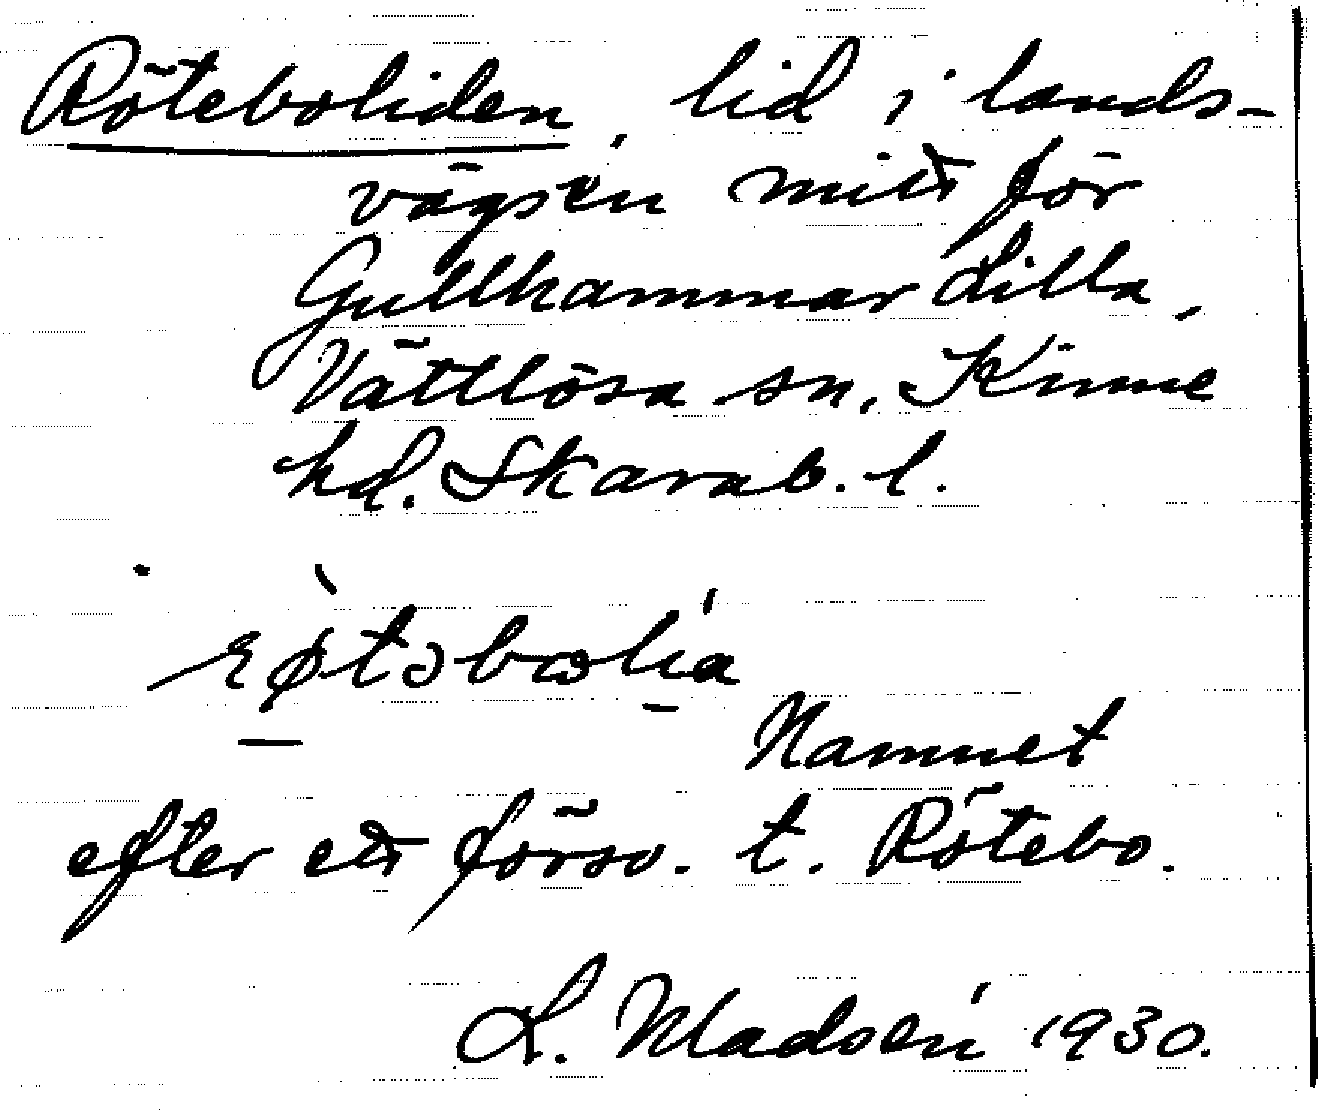 Röteboliden, lid i lands-
vägen mitt för
Gullhammar Lilla,
Vättlösa sn, Kinne
hd. Skarab. l.
Namnet
efter ett försv. t. Rötebo.
L. Madsén 1930.